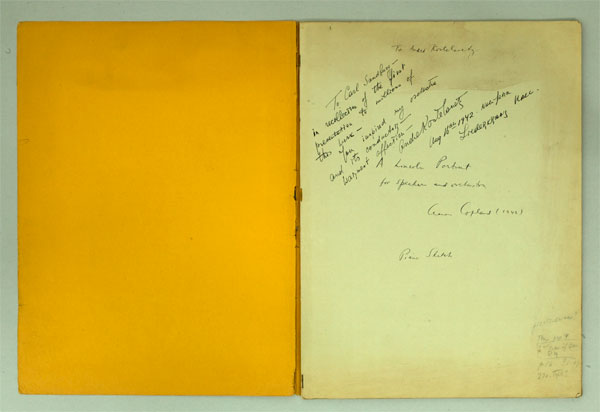 To André Kostelanetz
To Carl Sandburg –
in recollection of the first
presentation to millions of
this work –
You inspired my orchestra
and its conductor –
warmest affection –
André Kostelanetz
Aug 16th 1942
Liederkranz Hall.
A Lincoln Portrait
for speaker and orchestra
Aaron Copland (1942)
Piano Sketch